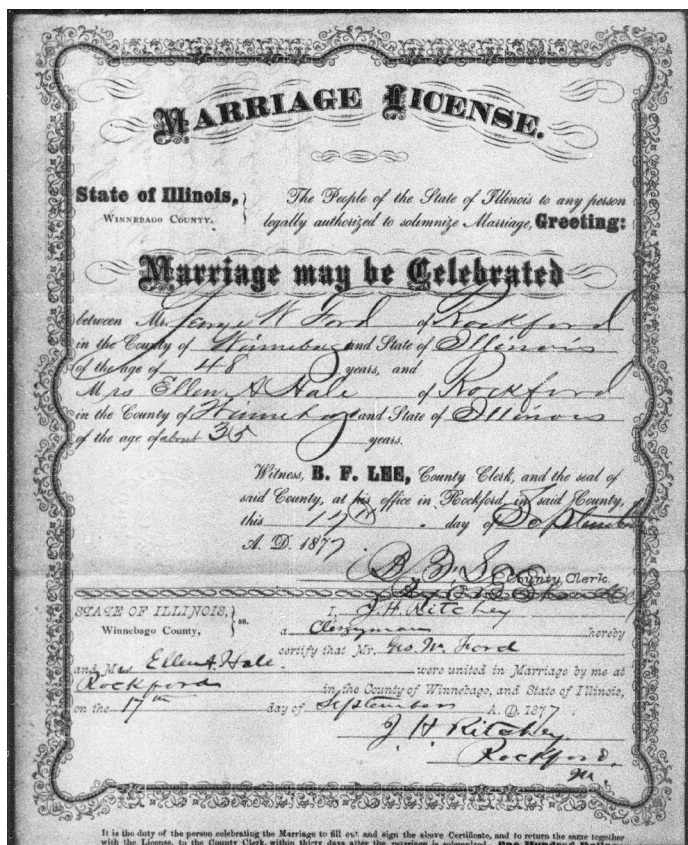 MARRIAGE LICENSE.
State of Illinois,
WINNEBAGO COUNTY.
The People of the State of Illinois to any person
legally authorized to solemnize Marriage, Greeting:
Marriage may be Celebrated
between Mr. George W Ford of Rockford
in the County of Winnebago and State of Illinois
of the age of 48 years, and
Mrs Ellen A Hale of Rockford
in the County of Winnebago and State of Illinois
of the age of about 35 years.
Witness, B. F. LEE, County Clerk, and the seal of
said County, at his office in Rockford, in said County,
this 17th day of September
A. D. 1877.
B. F. Lee County Clerk.
STATE OF ILLINOIS,
Winnebago County,
ss.
I, J. H. Ritchey
a Clergyman hereby
certify that Mr. Geo W. Ford
and Mrs Ellen A. Hale were united in Marriage by me at
Rockford in the County of Winnebago, and State of Illinois,
on the 17th day of September A. D. 1877
J H Ritchey
Rockford,
Ill.
It is the duty of the person celebrating the Marriage to fill out and sign the above Certificate, and to return the same together
with the License, to the County Clerk, within thirty days after the marriage is solemnized. One Hundred